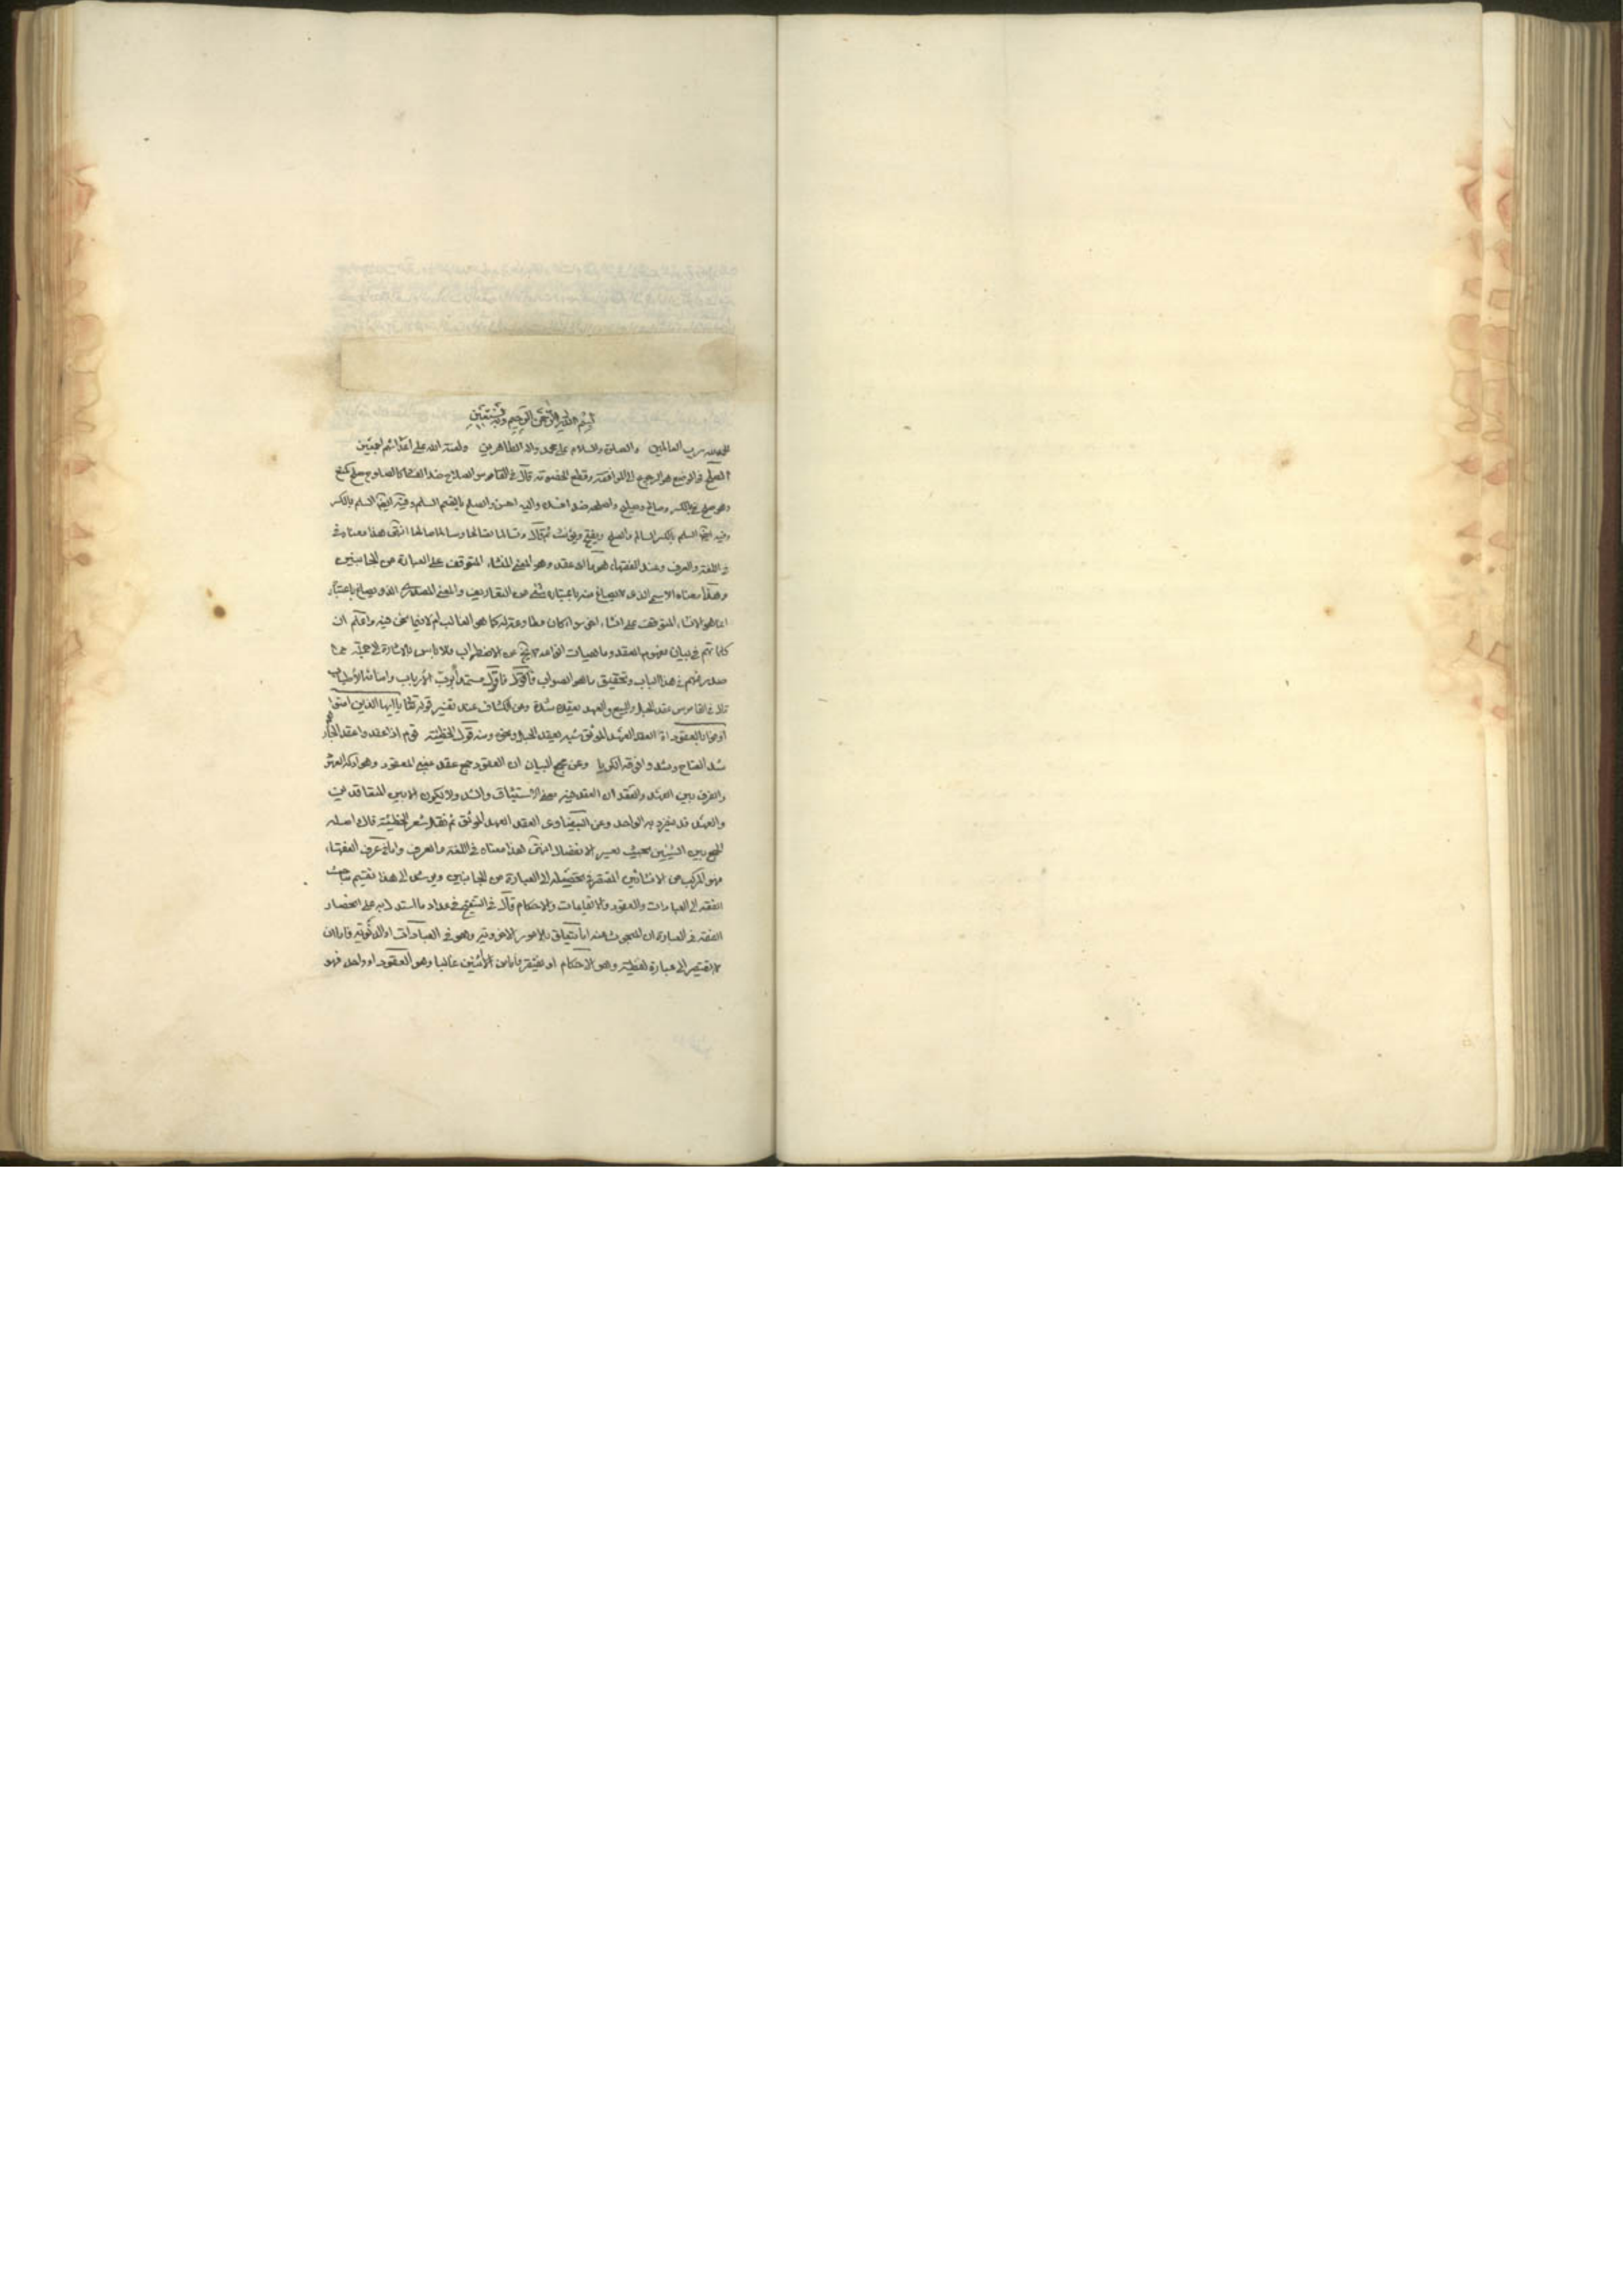 بسم الله الرحمن الرحيم وبه نستعين
الحمد لله رب العالمين والصلوة والسلام على محمد واله الطاهرين ولعنة الله على اعدائهم اجمعين
الصلح في الوضع هو الرجوع الى الموافقة وقطع الخصومة قال في القاموس الصلاح ضد الفساد كالصلوح صلح كمنع
وهو صلح بالكسر وصالح وصليح واصلحه ضد افسده واليه احسن والصلح بالضم السلم وفيه ايضا السلم بالكسر
وفيه ايضا السلم بالكسر السالم والصلح ويفتح ويؤنث ثم قال وتسالما تصالحا وسالما صالحا انتهى هذا معناه في
في اللغة والعرف وعند الفقهاء هو عقد وهو المعنى المنشاء المتوقف على العبارة من الجانبين
وهذا معناه الاسمي الذي لا يصاغ منه باعتباره شئ من التصاريف والمعنى المصدري الذي يصاغ باعتباره
انما هو الانشاء المتوقف على انشاء اخر سواء كان مطاوعة له كما هو الغالب ام لا فيما نحن فيه واعلم ان
كلماتهم في بيان مفهوم العقد وماهيات انواعه لا تخ عن الاضطراب فلا باس بالاشارة الى جملة مما
صدر منهم في هذا الباب وتحقيق ما هو الصواب فاقول مستمدا برب الارباب وامنائه الاطياب
قال في القاموس عقد الحبل والبيع والعهد يعقده شدة وعن الكشاف عند تفسير قوله تعالى يا ايها الذين امنوا
اوفوا بالعقود ان العقد العهد الموثق شبه بعقد الحبل ونحوه ومنه قول الحطيئة قوم اذا عقدوا عقدا لجارهم
شدوا العناج وشدوا فوقه الكربا وعن مجمع البيان ان العقود جمع عقد بمعنى المعقود وهو اوكد العهود
والفرق بين العهد والعقد ان العقد فيه معنى الاستيثاق والشد ولا يكون الا بين المتعاقدين
والعهد قد ينفرد به الواحد وعن البيضاوي العقد العهد الموثق ثم نقل شعر الحطيئة قال واصله
الجمع بين الشيئين بحيث يعسر الانفصال انتهى هذا معناه في اللغة والعرف واما في عرف الفقهاء
فهو المركب من الانشائين المفتقر في تحصيله الى العبارة من الجانبين ويرشد الى هذا تقسيم مباحث
الفقه الى العبادات والعقود والايقاعات والاحكام قال في التنقيح في عداد ما استدل به على انحصار
الفقه في العبارة ان المبحوث عنه اما يتعلق بالامور الاخروية وهو في العبادات او الدنيوية فاما ان
لا يفتقر الى عبارة لفظية وهو الاحكام او يفتقر فاما من الاثنين غالبا وهو العقود او واحد فهو